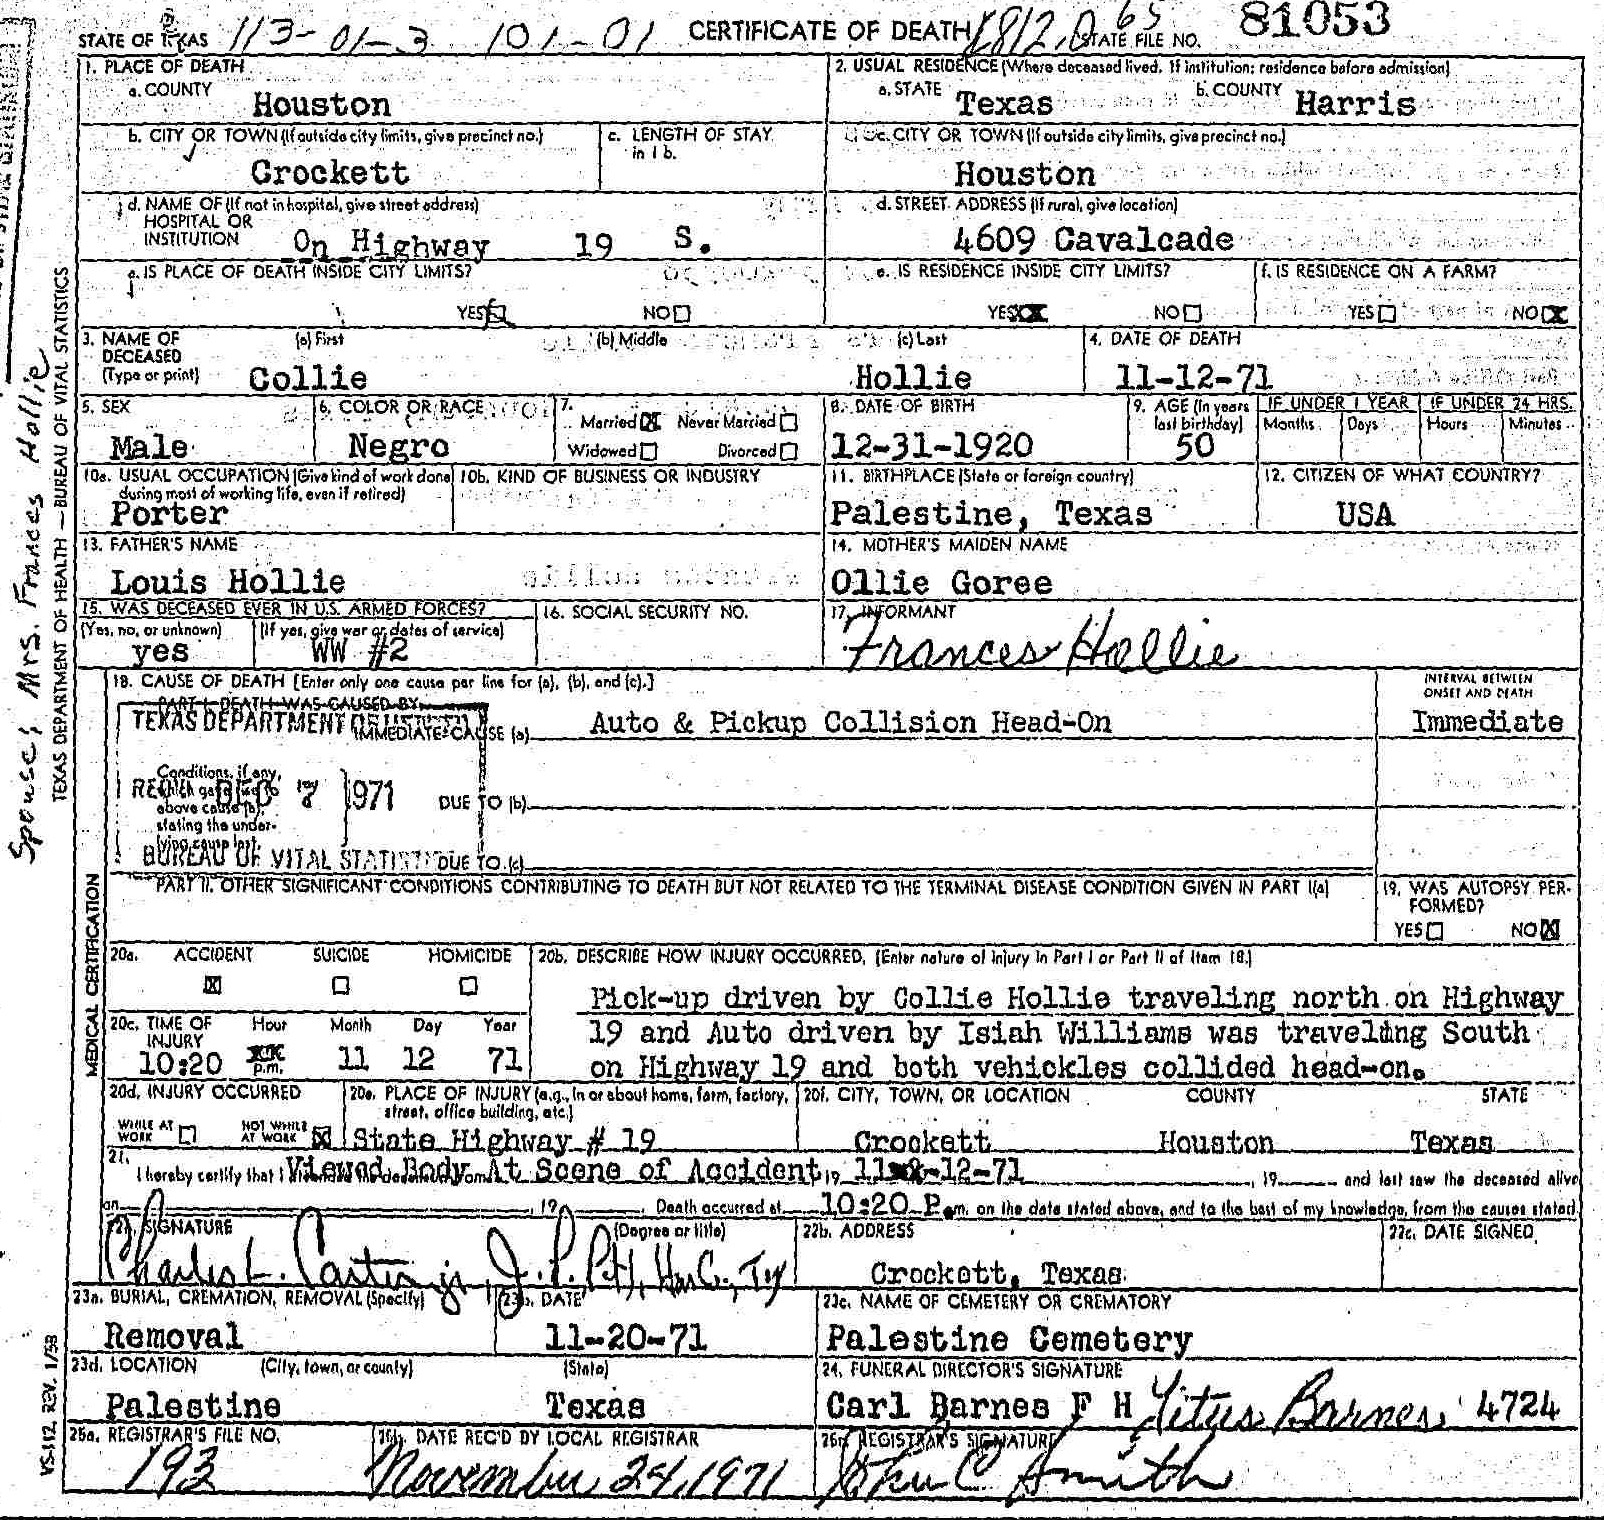 STATE OF TEXAS 113-01-3 101-01 CERTIFICATE OF DEATH STATE FILE NO. 65 81053
1. PLACE OF DEATH
a. COUNTY Houston
2. USUAL RESIDENCE (Where deceased lived. If institution: residence before admission)
a. STATE Texas b. COUNTY Harris
b. CITY OR TOWN (If outside city limits, give precinct no.) Crockett
c. LENGTH OF STAY in 1 b.
c. CITY OR TOWN (If outside city limits, give precinct no.) Houston
d. NAME OF (If not in hospital, give street address)
HOSPITAL OR
INSTITUTION On Highway 19 S.
d. STREET ADDRESS (If rural, give location)
4609 Cavalcade
e. IS PLACE OF DEATH INSIDE CITY LIMITS?
YES NO
e. IS RESIDENCE INSIDE CITY LIMITS?
YES NO
f. IS RESIDENCE ON A FARM?
YES NO
3. NAME OF DECEASED (Type or print)
(a) First (b) Middle (c) Last
Collie Hollie
4. DATE OF DEATH
11-12-71
5. SEX
Male
6. COLOR OR RACE
Negro
7. Married Never Married
Widowed Divorced
8. DATE OF BIRTH
12-31-1920
9. AGE (In years last birthday)
50
IF UNDER 1 YEAR
Months Days
IF UNDER 24 HRS.
Hours Minutes
10a. USUAL OCCUPATION (Give kind of work done during most of working life, even if retired)
Porter
10b. KIND OF BUSINESS OR INDUSTRY
11. BIRTHPLACE (State or foreign country)
Palestine, Texas
12. CITIZEN OF WHAT COUNTRY?
USA
13. FATHER'S NAME
Louis Hollie
14. MOTHER'S MAIDEN NAME
Ollie Goree
15. WAS DECEASED EVER IN U.S. ARMED FORCES?
(Yes, no, or unknown) (If yes, give war or dates of service)
yes WW #2
16. SOCIAL SECURITY NO.
17. INFORMANT
Frances Hollie
18. CAUSE OF DEATH [Enter only one cause per line for (a), (b), and (c).]
INTERVAL BETWEEN ONSET AND DEATH
PART I. DEATH WAS CAUSED BY:
TEXAS DEPARTMENT OF HEALTH
IMMEDIATE CAUSE (a) Auto & Pickup Collision Head-On Immediate
Conditions, if any, which gave rise to above cause (a), stating the underlying cause last.
REC'D DEC 7 1971
DUE TO (b)
BUREAU OF VITAL STATISTICS
DUE TO (c)
PART II. OTHER SIGNIFICANT CONDITIONS CONTRIBUTING TO DEATH BUT NOT RELATED TO THE TERMINAL DISEASE CONDITION GIVEN IN PART I(a)
19. WAS AUTOPSY PERFORMED?
YES NO
20a. ACCIDENT SUICIDE HOMICIDE
20b. DESCRIBE HOW INJURY OCCURRED. (Enter nature of injury in Part I or Part II of Item 18.)
Pick-up driven by Collie Hollie traveling north on Highway
19 and Auto driven by Isiah Williams was traveling South
on Highway 19 and both vehickles collided head-on.
20c. TIME OF INJURY Hour Month Day Year
10:20 p.m. 11 12 71
20d. INJURY OCCURRED
WHILE AT WORK NOT WHILE AT WORK
20e. PLACE OF INJURY (e.g., in or about home, farm, factory, street, office building, etc.)
State Highway # 19
20f. CITY, TOWN, OR LOCATION COUNTY STATE
Crockett Houston Texas
21. I hereby certify that I Viewed Body At Scene of Accident, 19 11-12-71, 19 and last saw the deceased alive
on , 19 . Death occurred at 10:20 P.m. on the date stated above, and to the best of my knowledge, from the causes stated.
22a. SIGNATURE (Degree or title)
Charles L. Carter jr., J.P. Pct 1, Hou Co., Tex
22b. ADDRESS
Crockett, Texas
22c. DATE SIGNED
23a. BURIAL, CREMATION, REMOVAL (Specify)
Removal
23b. DATE
11-20-71
23c. NAME OF CEMETERY OR CREMATORY
Palestine Cemetery
23d. LOCATION (City, town, or county) (State)
Palestine Texas
24. FUNERAL DIRECTOR'S SIGNATURE
Carl Barnes F H Titus Barnes 4724
25a. REGISTRAR'S FILE NO.
193
25b. DATE REC'D BY LOCAL REGISTRAR
November 24, 1971
25c. REGISTRAR'S SIGNATURE
Smith
Spouse; Mrs. Frances Hollie
TEXAS DEPARTMENT OF HEALTH — BUREAU OF VITAL STATISTICS
MEDICAL CERTIFICATION
VS-112 REV. 1/58